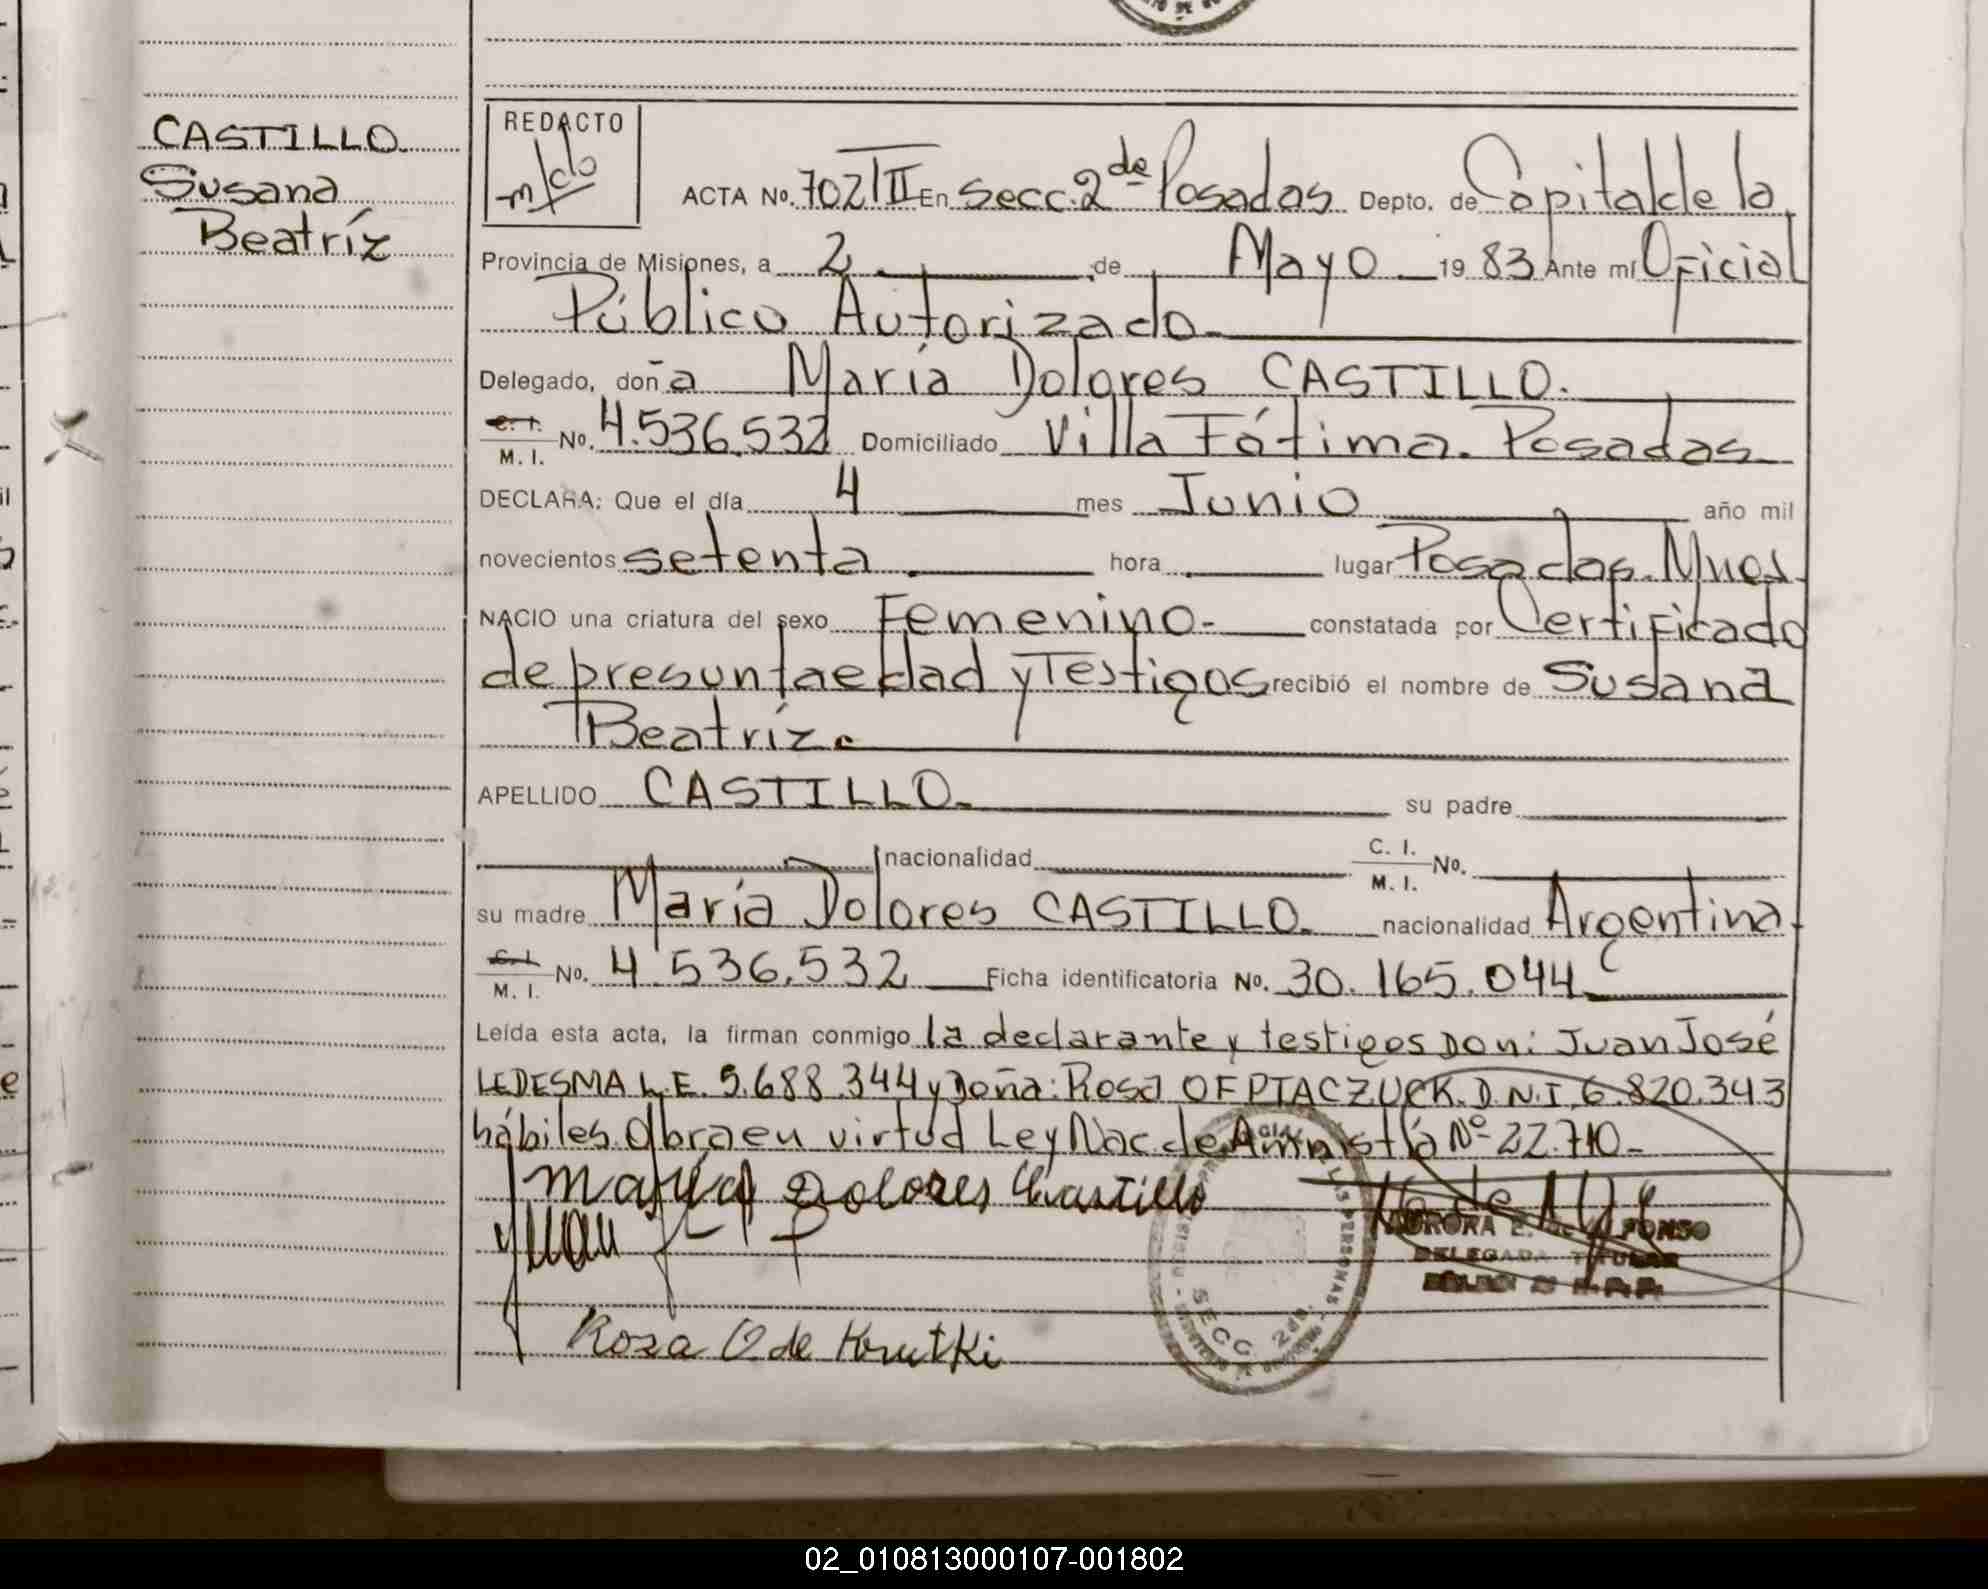 CASTILLO
Susana
Beatríz
REDACTO
ACTA No. 702/III En Secc. 2de Posadas Depto. de Capital de la
Provincia de Misiones, a 2 de Mayo 19 83 Ante mí Oficial
Público Autorizado
Delegado, doña María Dolores CASTILLO.
C. I. M. I. No. 4.536.532 Domiciliado Villa Fátima. Posadas
DECLARA: Que el día 4 mes Junio año mil
novecientos setenta hora lugar Posadas. Mnes.
NACIO una criatura del sexo Femenino- constatada por Certificado
de presunta edad y Testigos recibió el nombre de Susana
Beatríz.
APELLIDO CASTILLO. su padre
nacionalidad C. I. M. I. No.
su madre María Dolores CASTILLO. nacionalidad Argentina.
C. I. M. I. No. 4.536.532 Ficha identificatoria No. 30.165.044
Leída esta acta, la firman conmigo la declarante y testigos Don: Juan José
LEDESMA L.E. 5.688.344 y Doña: Rosa OFPIACZUCK. D.N.I. 6.820.343
hábiles. Obra en virtud Ley Nac. de Amnistía Nº 22.710-
María Dolores Castillo
Juan
AURORA E. DE ALFONSO
DELEGADA TITULAR
SECC 2da.
PERSONAS
Rosa O de Krutki
02_010813000107-001802